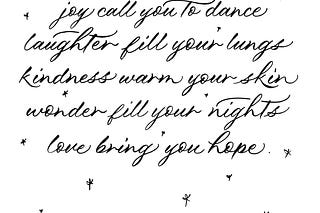 joy call you to dance
laughter fill your lungs
kindness warm your skin
wonder fill your nights
love bring you hope.